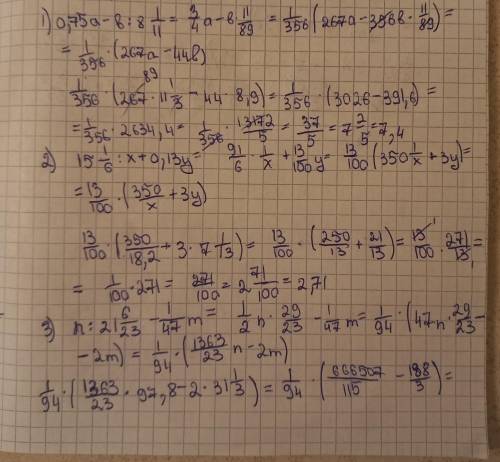 1) 0,75a - в : 8 1/11 = 3/4 a - в · 11/89 = 1/356 (267a - 356в · 11/89) =
= 1/356 · (267a - 44в)
1/356 · (267 · 11 1/3 - 44 · 8,9) = 1/356 · (3026 - 391,6) =
= 1/356 · 2634,4 = 1/356 · 13172/5 = 37/5 = 7 2/5 = 7,4
2) 15 1/6 : x + 0,13y = 91/6 · 1/x + 13/100 y = 13/100 (350 1/x + 3y) =
= 13/100 · (350/x + 3y)
13/100 · (350/18,2 + 3 · 7 1/13) = 13/100 · (250/13 + 21/13) = 13/100 · 271/13 =
= 1/100 · 271 = 271/100 = 2 71/100 = 2,71
3) n : 21 6/23 - 1/47 m = 1/2 n · 29/23 - 1/47 m = 1/94 · (47n · 29/23 -
- 2m) = 1/94 · (1363/23 n - 2m)
1/94 · (1363/23 · 97,8 - 2 · 31 1/3) = 1/94 · (666507/115 - 188/3) =